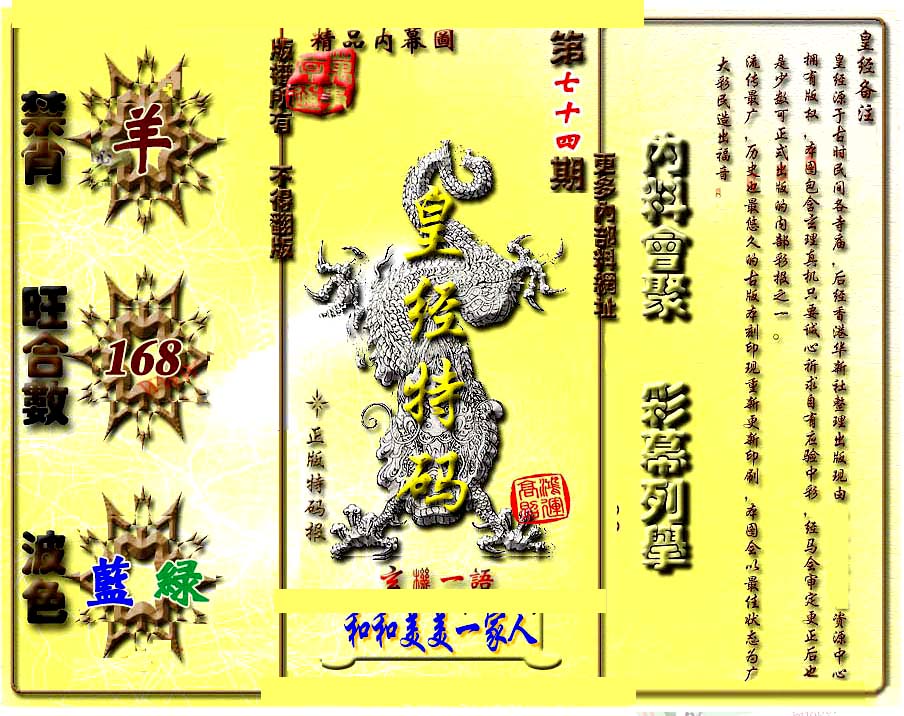 精品内幕圖
第七十四期
版權所有 不得翻版
更多內部料網址
禁肖
羊
旺合數
168
波色
藍 綠
皇经特码
正版特码报
鴻運高照
玄機一語
和和美美一家人
內料會聚
彩幕列舉
皇经备注
皇经源于古时民间各寺庙，后经香港华新社整理出版现由
资源中心
拥有版权，本图包含玄理真机只要诚心祈求自有应验中彩，经马会审定更正后也
是少数可正式出版的内部彩报之一。
流传最广，历史也最悠久的古版本刻印现重新更新印刷，本图会以最佳状态为广
大彩民造出福音